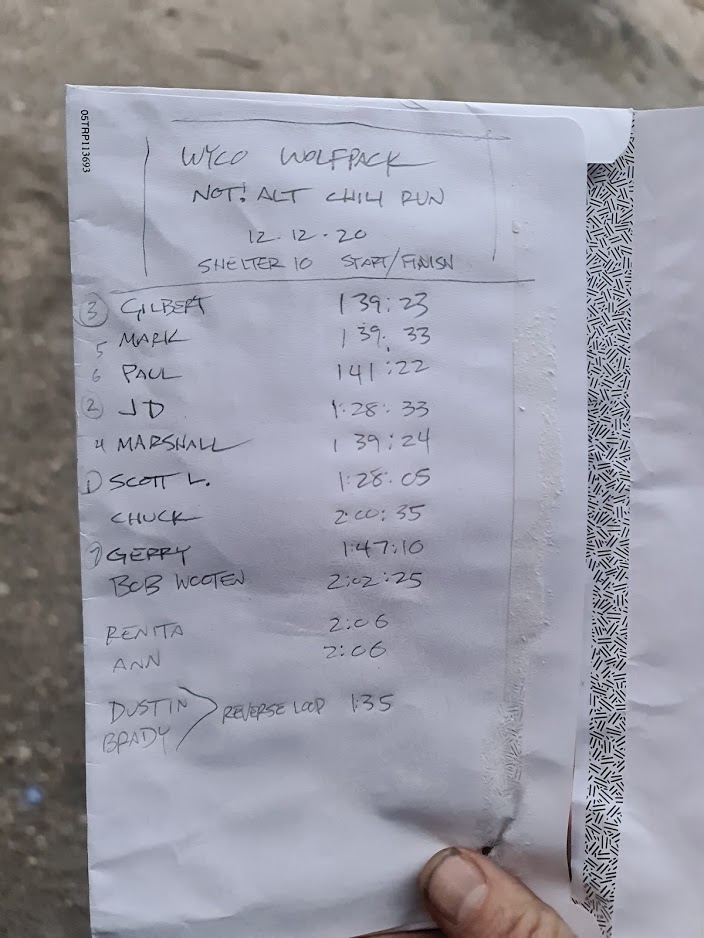 05TRP113693
WYCO WOLFPACK
NOT! ALT CHILI RUN
12.12.20
SHELTER 10 START/FINISH
3 GILBERT 1 39:23
5 MARK 1 39:33
6 PAUL 1 41:22
2 JD 1:28:33
4 MARSHALL 1 39:24
1 SCOTT L. 1:28:05
CHUCK 2:00:35
7 GERRY 1:47:10
BOB WOOTEN 2:02:25
RENITA 2:06
ANN 2:06
DUSTIN
BRADY
REVERSE LOOP 1:35